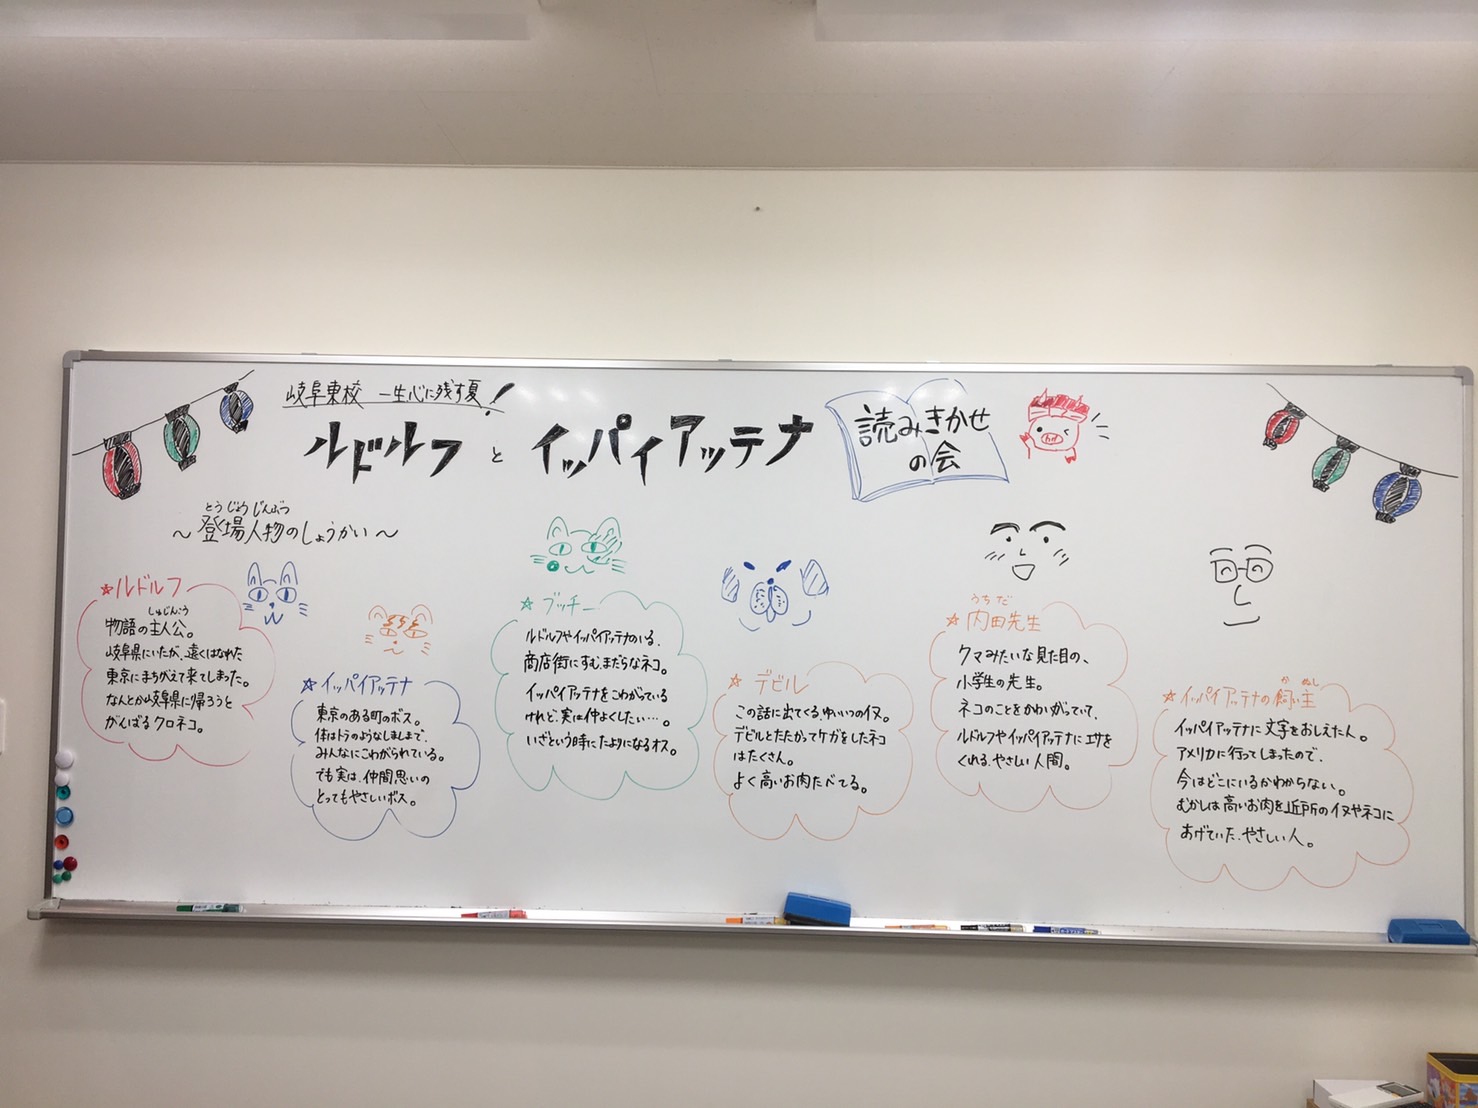 岐阜東校 一生心に残す夏!
ルドルフとイッパイアッテナ
読みきかせ
の会
とうじょうじんぶつ
～登場人物のしょうかい～
☆ルドルフ
しゅじんこう
物語の主人公。
岐阜県にいたが、遠くはなれた
東京にまちがえて来てしまった。
なんとか岐阜県に帰ろうと
がんばるクロネコ。
☆イッパイアッテナ
東京のある町のボス。
体はトラのようなしましまで、
みんなにこわがられている。
でも実は、仲間思いの
とってもやさしいボス。
☆ブッチー
ルドルフやイッパイアッテナのいる、
商店街にすむ、まだらなネコ。
イッパイアッテナをこわがっている
けれど、実は仲よくしたい…。
いざという時にたよりになるオス。
☆デビル
この話に出てくる、ゆいいつのイヌ。
デビルとたたかってケガをしたネコ
はたくさん。
よく高いお肉たべてる。
うちだ
☆内田先生
クマみたいな見た目の、
小学生の先生。
ネコのことをかわいがっていて、
ルドルフやイッパイアッテナにエサを
くれる、やさしい人間。
か ぬし
☆イッパイアッテナの飼い主
イッパイアッテナに文字をおしえた人。
アメリカに行ってしまったので、
今はどこにいるかわからない。
むかしは高いお肉を近所のイヌやネコに
あげていた、やさしい人。